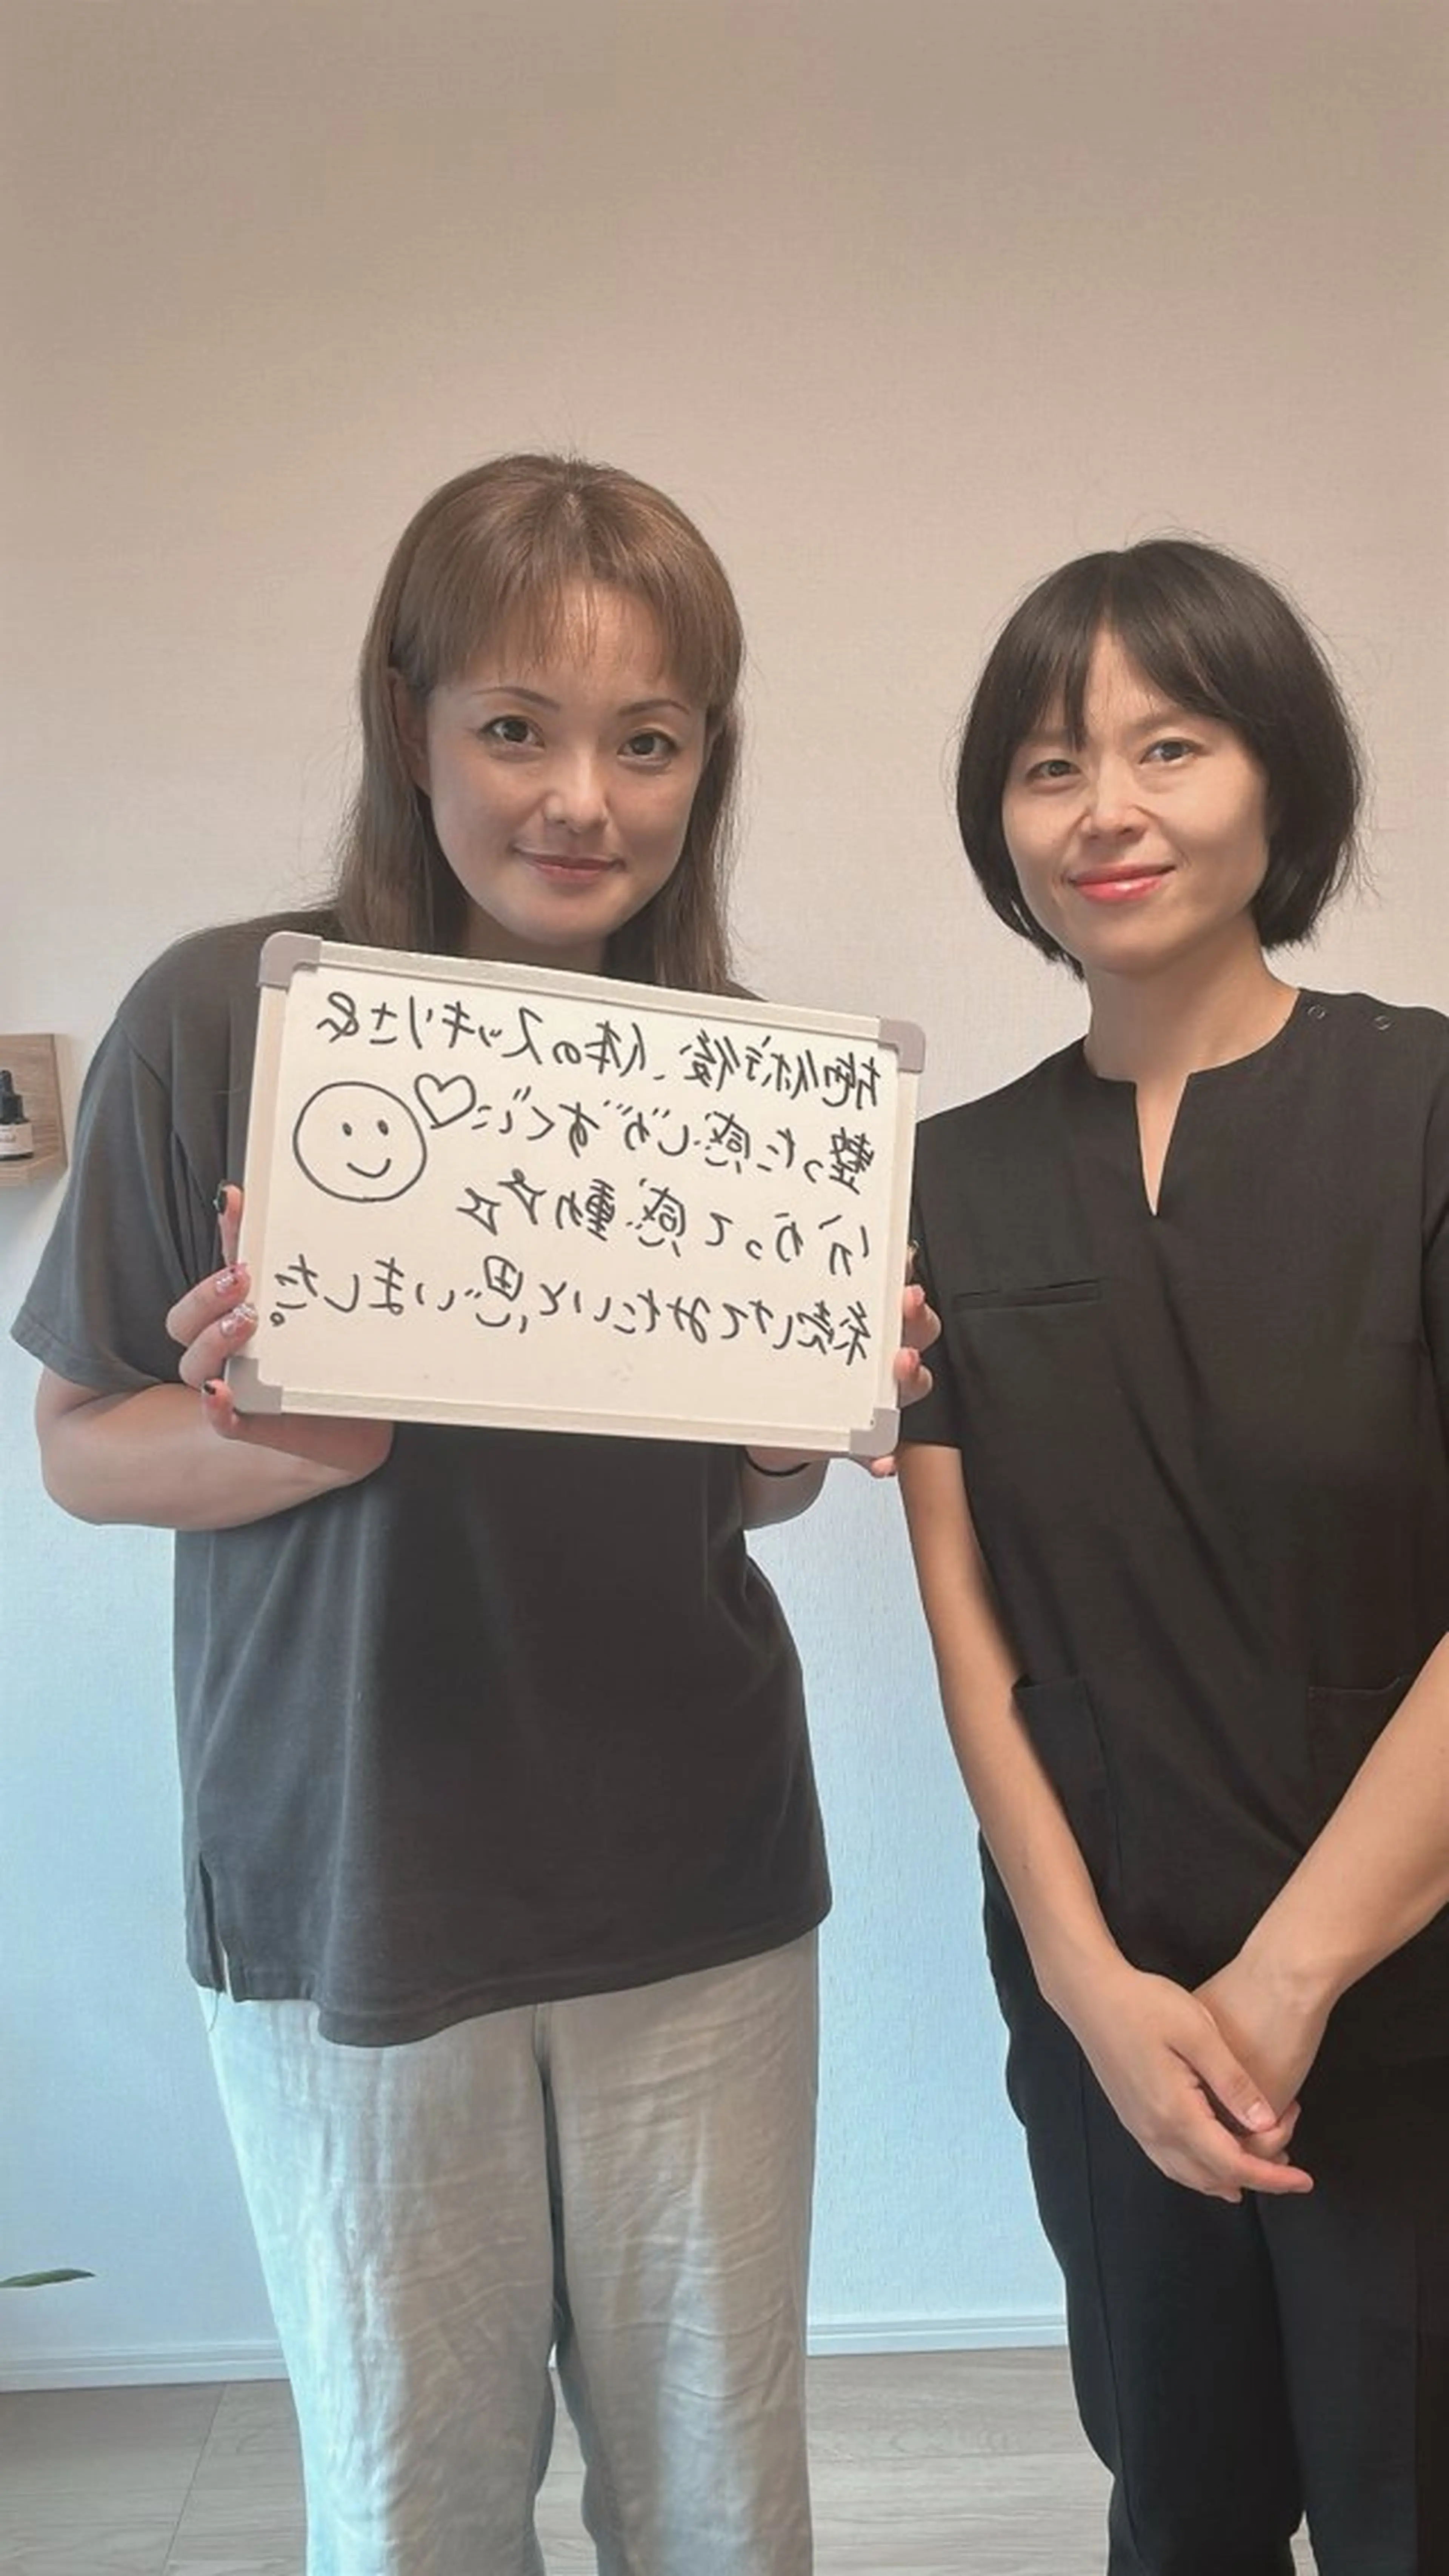 施術後、体のスッキリさ&
整った感じがすぐに♡
分かって感動☆☆
続けてみたいと思いました。